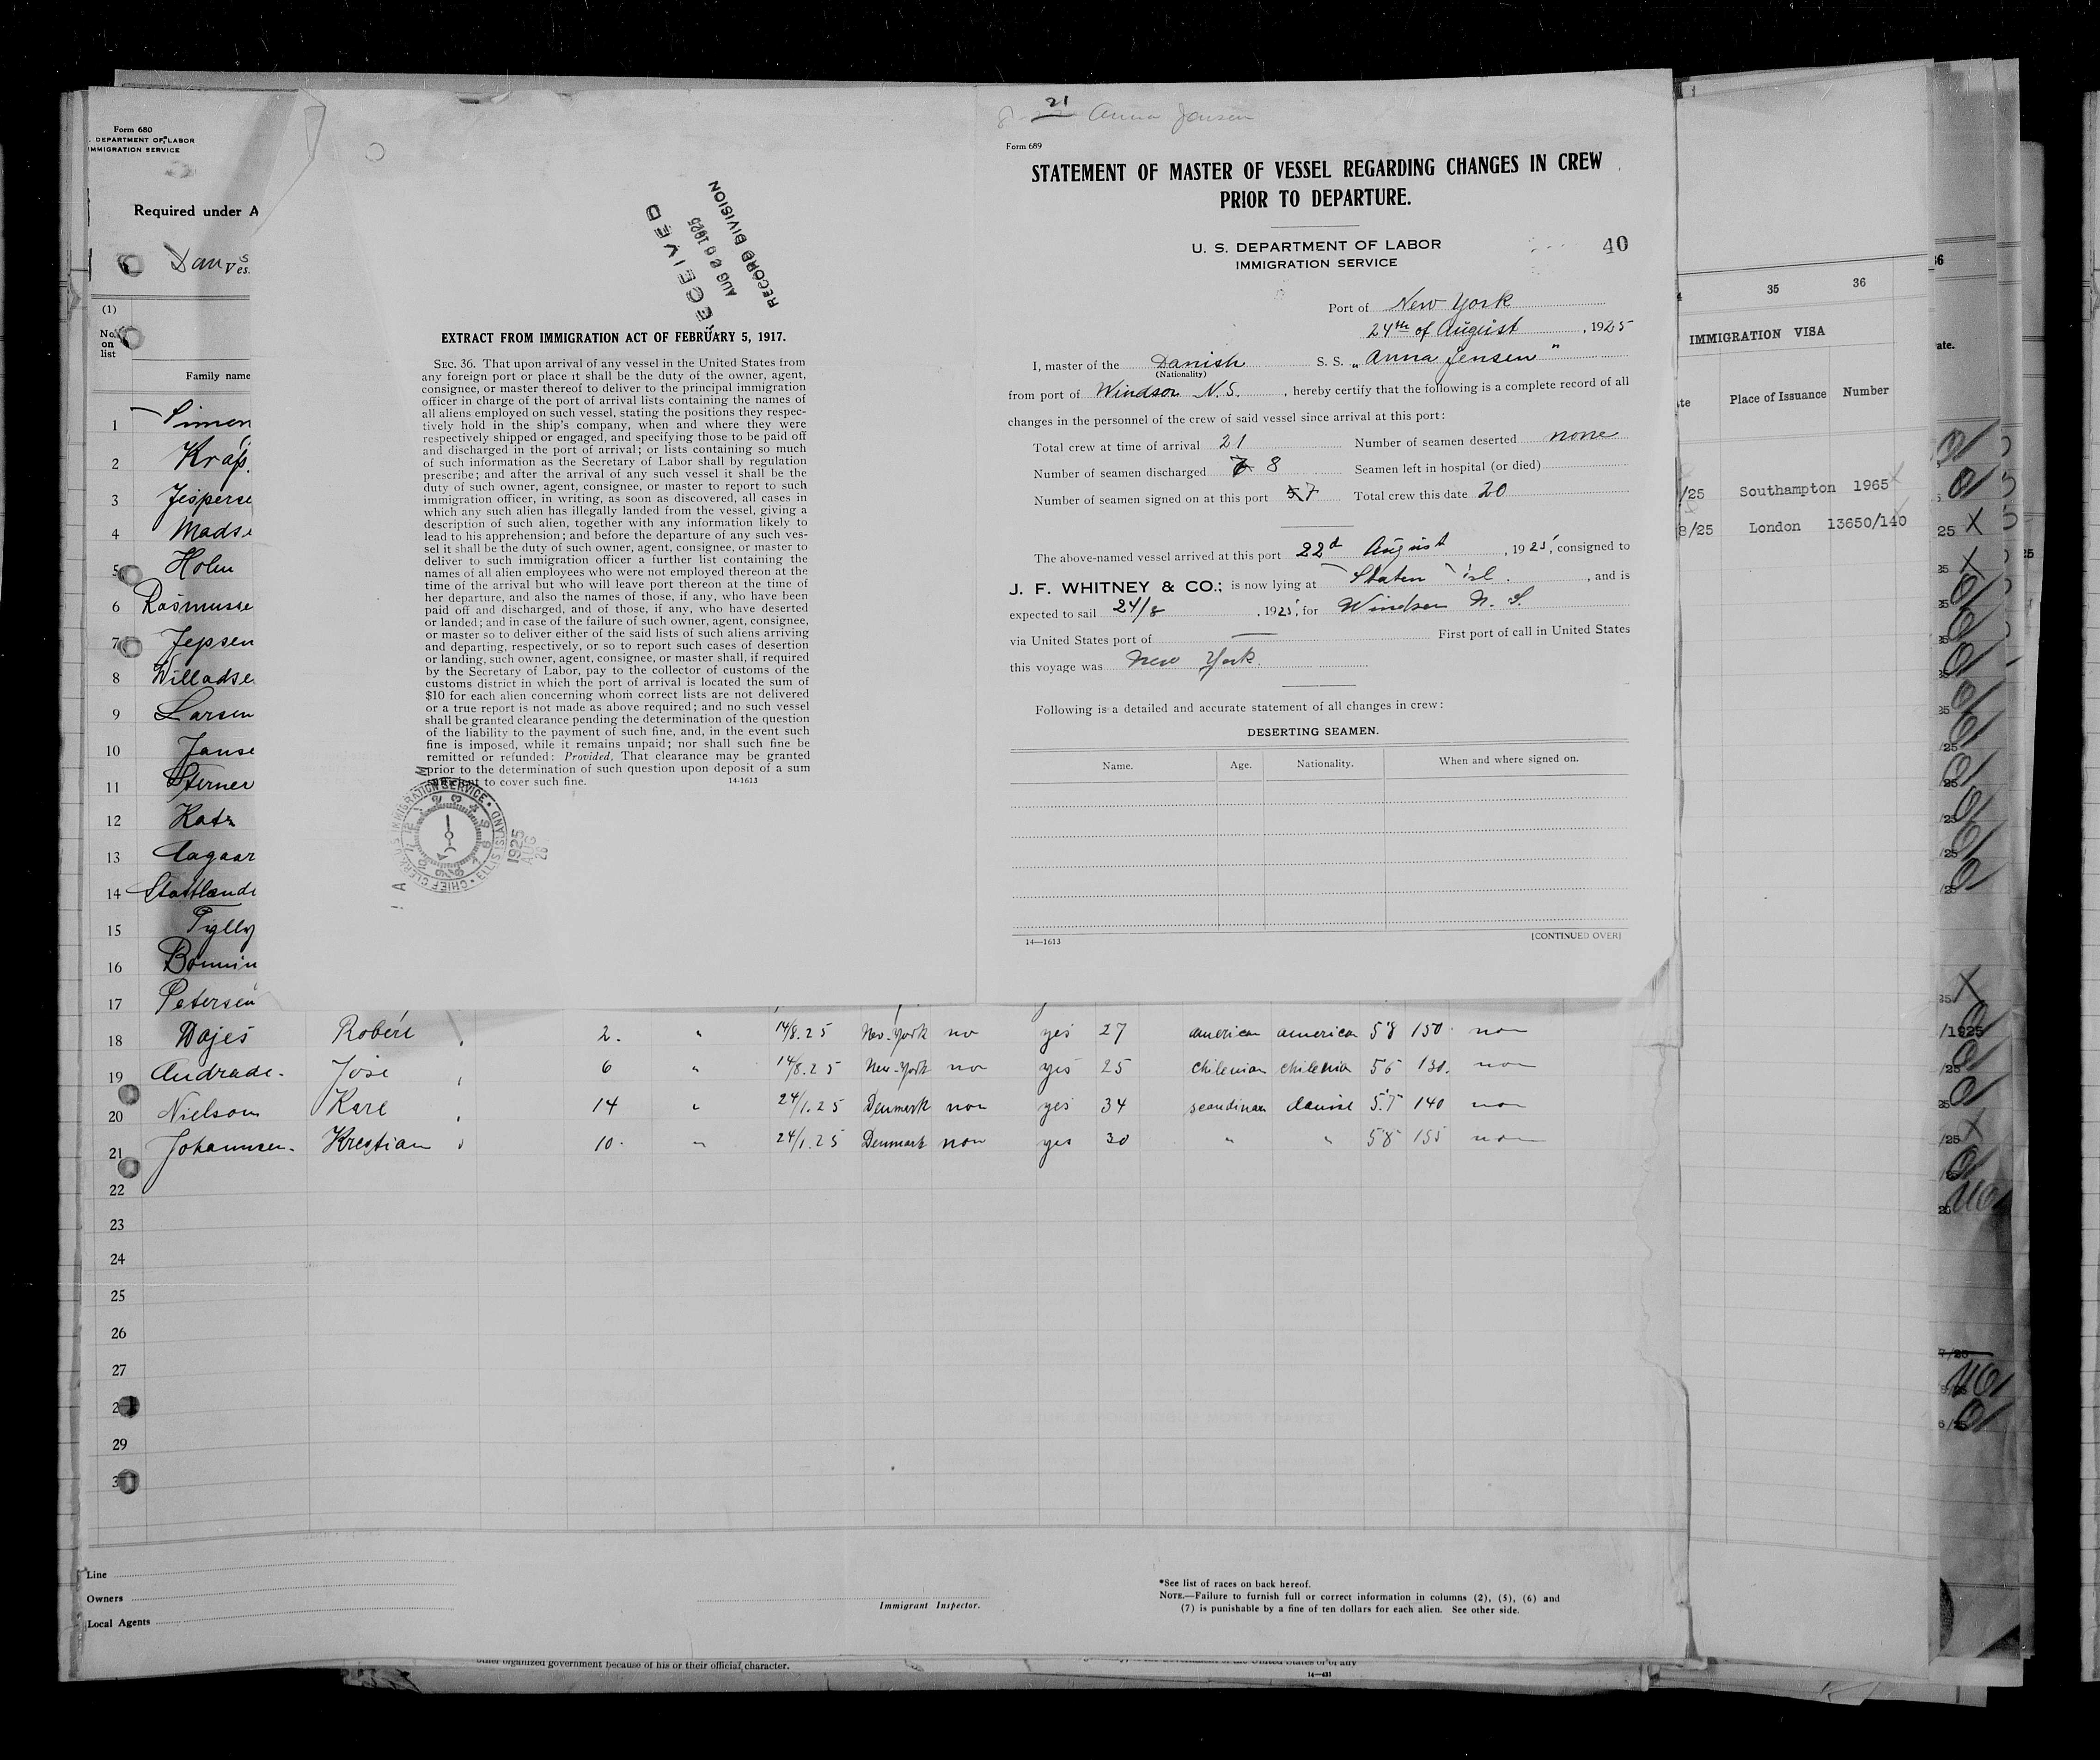 Form 680
. DEPARTMENT OF LABOR
MMIGRATION SERVICE
Required under A
Ves.
(1)
No. on list
Family name
1
2 Krap
3 Jesperse
4 Mads
5 Holm
6 Rasmusse
7 Jepsen
8 Willadse
9 Larsen
10 Janse
11 Sterner
12 Katz
13 Aagaar
14
15
16 Bonnin
17 Petersen
RECEIVED
AUG 26 1925
RECORD DIVISION
EXTRACT FROM IMMIGRATION ACT OF FEBRUARY 5, 1917.
SEC. 36. That upon arrival of any vessel in the United States from
any foreign port or place it shall be the duty of the owner, agent,
consignee, or master thereof to deliver to the principal immigration
officer in charge of the port of arrival lists containing the names of
all aliens employed on such vessel, stating the positions they respec-
tively hold in the ship's company, when and where they were
respectively shipped or engaged, and specifying those to be paid off
and discharged in the port of arrival; or lists containing so much
of such information as the Secretary of Labor shall by regulation
prescribe; and after the arrival of any such vessel it shall be the
duty of such owner, agent, consignee, or master to report to such
immigration officer, in writing, as soon as discovered, all cases in
which any such alien has illegally landed from the vessel, giving a
description of such alien, together with any information likely to
lead to his apprehension; and before the departure of any such ves-
sel it shall be the duty of such owner, agent, consignee, or master to
deliver to such immigration officer a further list containing the
names of all alien employees who were not employed thereon at the
time of the arrival but who will leave port thereon at the time of
her departure, and also the names of those, if any, who have been
paid off and discharged, and of those, if any, who have deserted
or landed; and in case of the failure of such owner, agent, consignee,
or master so to deliver either of the said lists of such aliens arriving
and departing, respectively, or so to report such cases of desertion
or landing, such owner, agent, consignee, or master shall, if required
by the Secretary of Labor, pay to the collector of customs of the
customs district in which the port of arrival is located the sum of
$10 for each alien concerning whom correct lists are not delivered
or a true report is not made as above required; and no such vessel
shall be granted clearance pending the determination of the question
of the liability to the payment of such fine, and, in the event such
fine is imposed, while it remains unpaid; nor shall such fine be
remitted or refunded: Provided, That clearance may be granted
prior to the determination of such question upon deposit of a sum
to cover such fine. 14-1613
CHIEF CLERK, U. S. IMMIGRATION SERVICE • ELLIS ISLAND •
1925
AUG
26
21 Anna Jensen
Form 689
STATEMENT OF MASTER OF VESSEL REGARDING CHANGES IN CREW
PRIOR TO DEPARTURE.
U. S. DEPARTMENT OF LABOR
IMMIGRATION SERVICE
40
Port of New York
24th of August, 1925
I, master of the Danish S. S. „Anna Jensen"
(Nationality)
from port of Windsor N.S., hereby certify that the following is a complete record of all
changes in the personnel of the crew of said vessel since arrival at this port:
Total crew at time of arrival 21 Number of seamen deserted none
Number of seamen discharged 8 Seamen left in hospital (or died)
Number of seamen signed on at this port 7 Total crew this date 20
The above-named vessel arrived at this port 22d August, 1925, consigned to
J. F. WHITNEY & CO.; is now lying at Staten Isl., and is
expected to sail 24/8, 1925, for Windsor N. S.
via United States port of — First port of call in United States
this voyage was New York.
Following is a detailed and accurate statement of all changes in crew:
DESERTING SEAMEN.
Name. Age. Nationality. When and where signed on.
14—1613 [CONTINUED OVER]
18 Dajes Robert 2. " 14/8.25 New-York no yes 27 american america 58 150 non
19 Andrade. José 6 " 14/8.25 New-York no yes 25 chilenian chilenia 56 130. non
20 Nielsen Karl 14 " 24/1.25 Denmark non yes 34 scandinav danise 57 140 non
21 Johannsen. Krestian 10. " 24/1.25 Denmark non yes 30 " " 58 155 non
22
23
24
25
26
27
2
29
3
Line
Owners
Local Agents
Immigrant Inspector.
*See list of races on back hereof.
NOTE.—Failure to furnish full or correct information in columns (2), (5), (6) and
(7) is punishable by a fine of ten dollars for each alien. See other side.
other organized government because of his or their official character.
14—431
35 36
IMMIGRATION VISA
te Place of Issuance Number
/25 Southampton 1965
8/25 London 13650/140
36
ate.